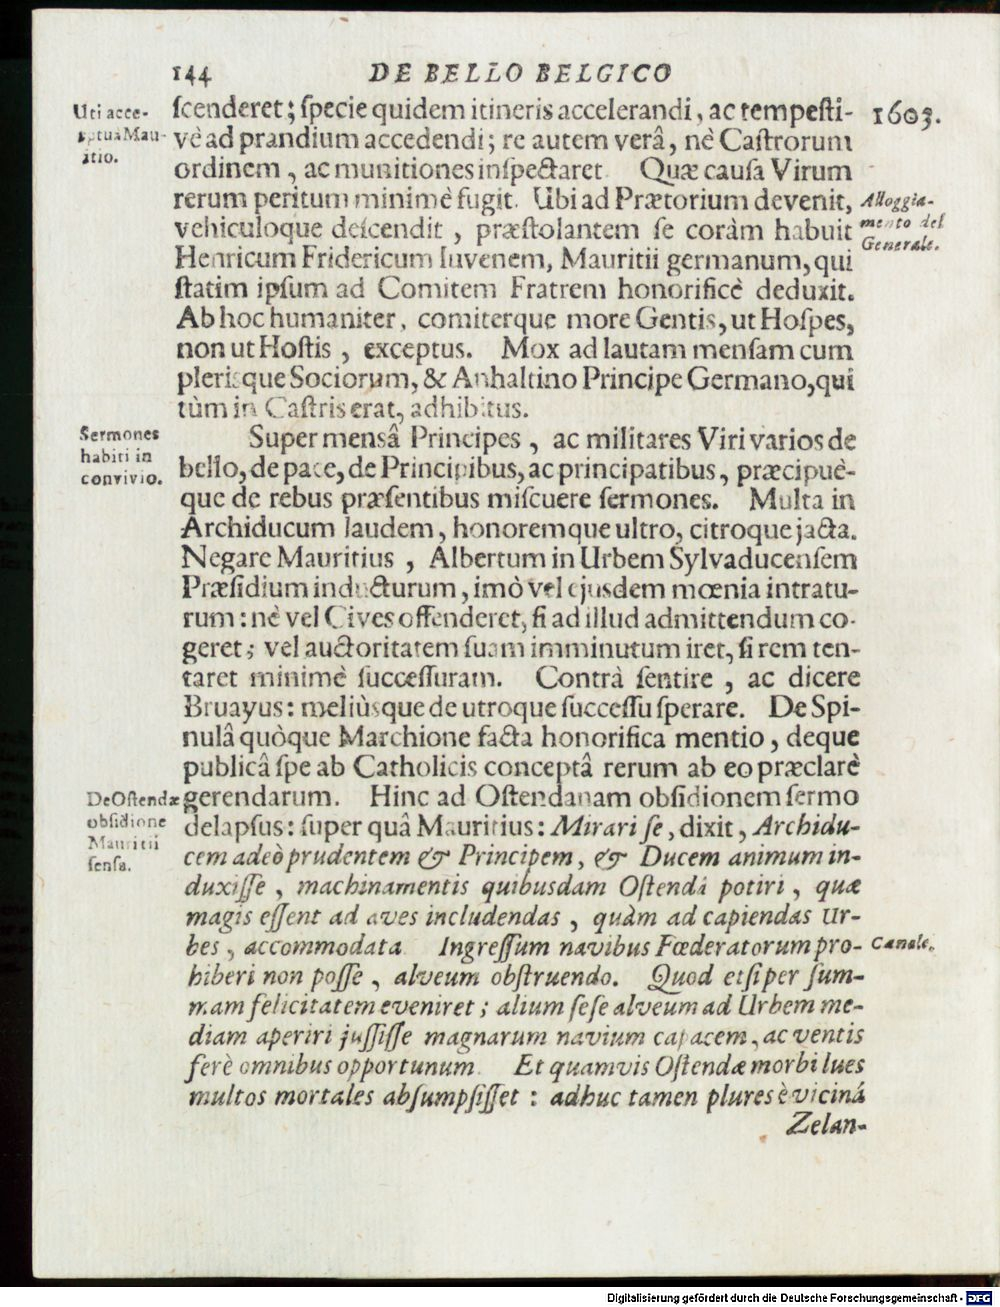 144 DE BELLO BELGICO
1603.
Uti acce-
ptus Mau-
itio.
ſcenderet; ſpecie quidem itineris accelerandi, ac tempeſti-
vè ad prandium accedendi; re autem verâ, nè Caſtrorum
ordinem, ac munitiones inſpectaret. Quæ cauſa Virum
rerum peritum minimè fugit. Ubi ad Prætorium devenit,
Alloggia-
mento del
Generale.
vehiculoque deſcendit, præſtolantem ſe coràm habuit
Henricum Fridericum Iuvenem, Mauritii germanum, qui
ſtatim ipſum ad Comitem Fratrem honorificè deduxit.
Ab hoc humaniter, comiterque more Gentis, ut Hoſpes,
non ut Hoſtis, exceptus. Mox ad lautam menſam cum
pleriſque Sociorum, & Anhaltino Principe Germano, qui
tùm in Caſtris erat, adhibitus.
Sermones
habiti in
convivio.
Super mensâ Principes, ac militares Viri varios de
bello, de pace, de Principibus, ac principatibus, præcipuè-
que de rebus præſentibus miſcuere ſermones. Multa in
Archiducum laudem, honoremque ultro, citroque jacta.
Negare Mauritius, Albertum in Urbem Sylvaducenſem
Præſidium inducturum, imò vel ejusdem mœnia intratu-
rum: nè vel Cives offenderet, ſi ad illud admittendum co-
geret; vel auctoritatem ſuam imminutum iret, ſi rem ten-
taret minimè ſucceſſuram. Contrà ſentire, ac dicere
Bruayus: meliùsque de utroque ſucceſſu ſperare. De Spi-
nulâ quòque Marchione facta honorifica mentio, deque
publicâ ſpe ab Catholicis conceptâ rerum ab eo præclarè
De Oſtendæ
obſidione
Mauritii
ſenſa.
gerendarum. Hinc ad Oſtendanam obſidionem ſermo
delapſus: ſuper quâ Mauritius: Mirari ſe, dixit, Archidu-
cem adeò prudentem & Principem, & Ducem animum in-
duxiſſe, machinamentis quibusdam Oſtendâ potiri, quæ
magis eſſent ad aves includendas, quàm ad capiendas Ur-
bes, accommodata. Ingreſſum navibus Fœderatorum pro-
Canale.
hiberi non poſſe, alveum obſtruendo. Quod etſi per ſum-
mam felicitatem eveniret; alium ſeſe alveum ad Urbem me-
diam aperiri juſſiſſe magnarum navium capacem, ac ventis
ferè omnibus opportunum. Et quamvis Oſtendæ morbi lues
multos mortales abſumpſiſſet: adhuc tamen plures è viciná
Zelan-
Digitalisierung gefördert durch die Deutsche Forschungsgemeinschaft - DFG